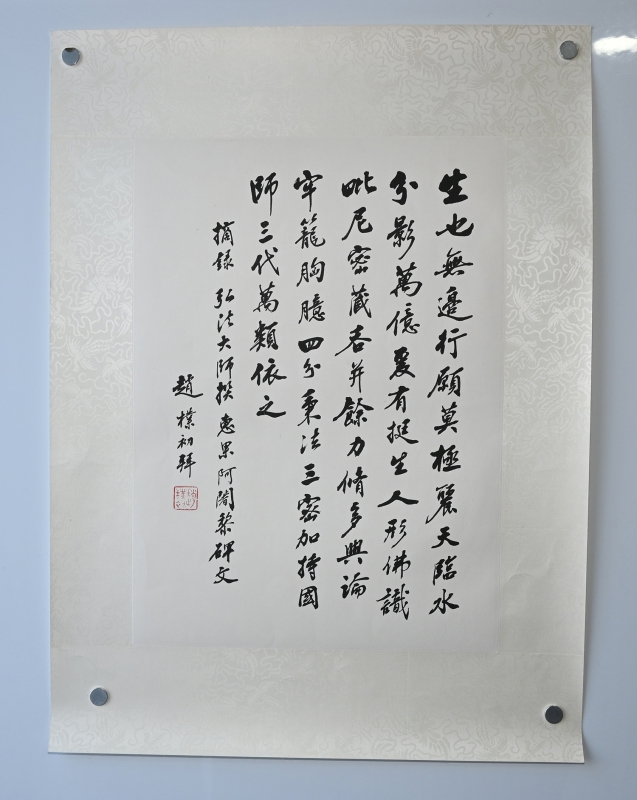 生也無邊行願莫極麗天臨水
分影萬億爰有挺生人形佛識
毗尼密藏吞并餘力脩多與論
牢籠胸臆四分秉法三密加持國
師三代萬類依之
摘録 弘法大師撰 惠果阿闍黎碑文
趙樸初拜